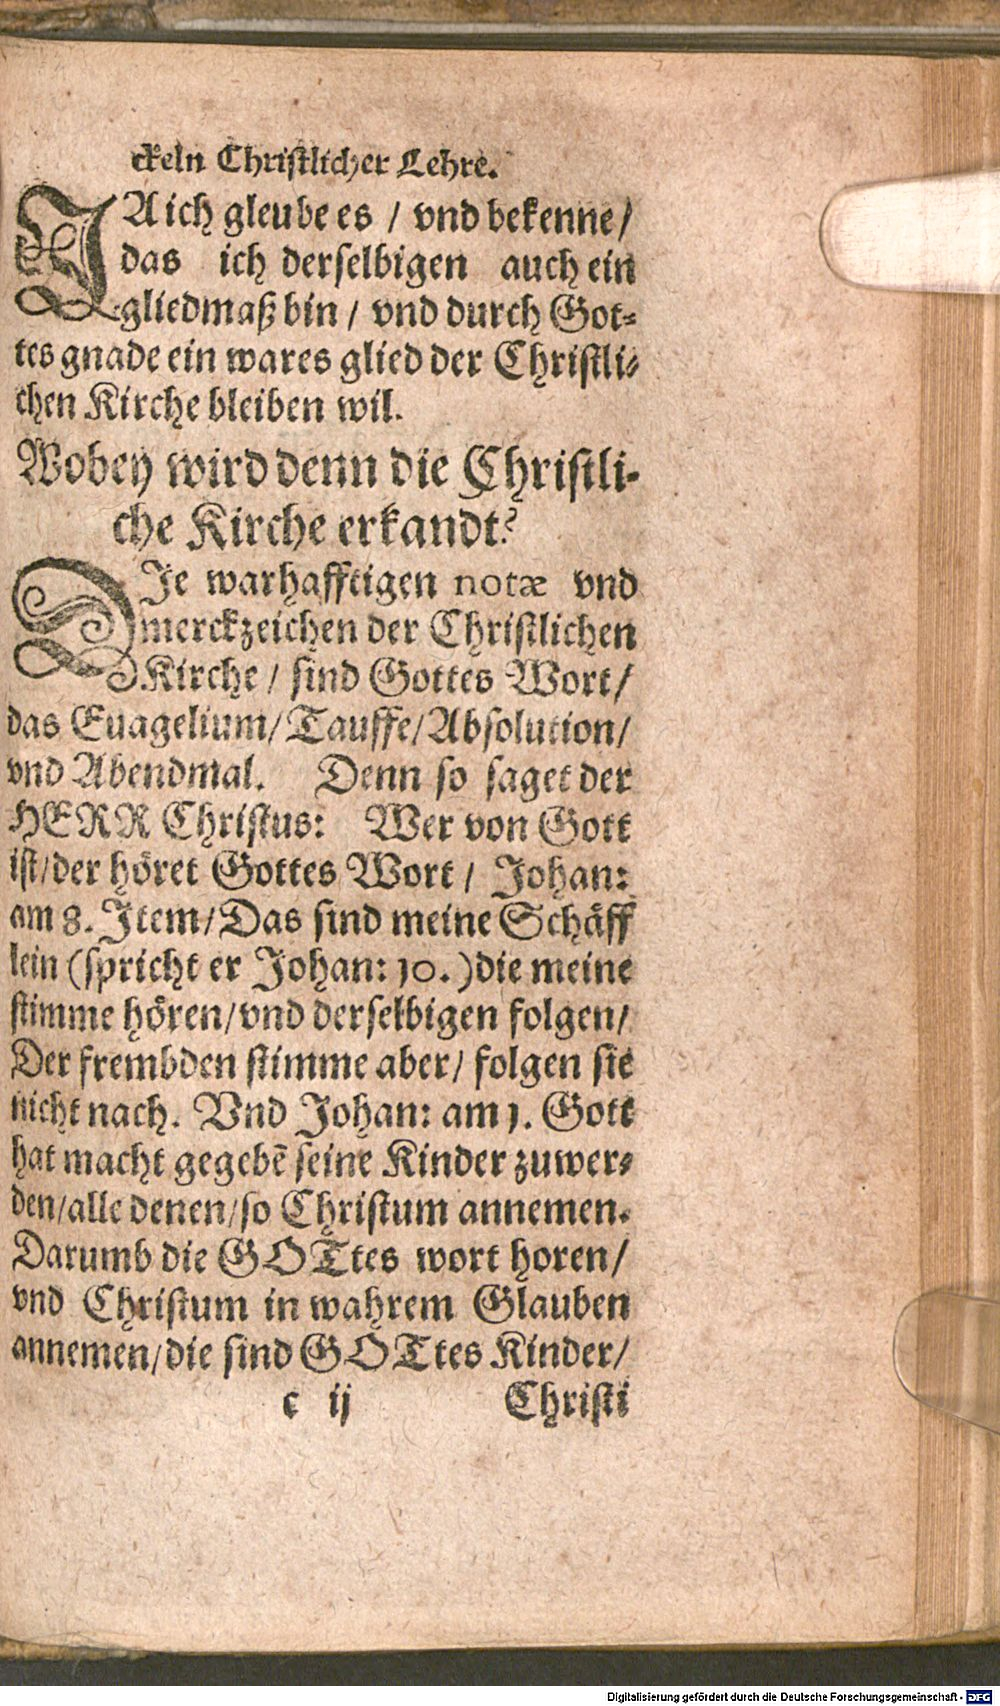 ckeln Christlicher Lehre.
JA ich gleube es / vnd bekenne/
das ich derselbigen auch ein
gliedmaß bin / vnd durch Got⸗
tes gnade ein wares glied der Christli⸗
chen Kirche bleiben wil.
Wobey wird denn die Christli⸗
che Kirche erkandt?
DJe warhafftigen notæ vnd
merckzeichen der Christlichen
Kirche / sind Gottes Wort/
das Euagelium/Tauffe/Absolution/
vnd Abendmal. Denn so saget der
HERR Christus: Wer von Gott
ist/der höret Gottes Wort / Johan:
am 8. Jtem/Das sind meine Schäff
lein (spricht er Johan: 10.)die meine
stimme hören/vnd derselbigen folgen/
Der frembden stimme aber/ folgen sie
nicht nach. Vnd Johan: am 1. Gott
hat macht gegebē seine Kinder zuwer⸗
den/alle denen/so Christum annemen.
Darumb die GOTtes wort horen/
vnd Christum in wahrem Glauben
annemen/die sind GOTtes Kinder/
c ij Christi
Digitalisierung gefördert durch die Deutsche Forschungsgemeinschaft - DFG